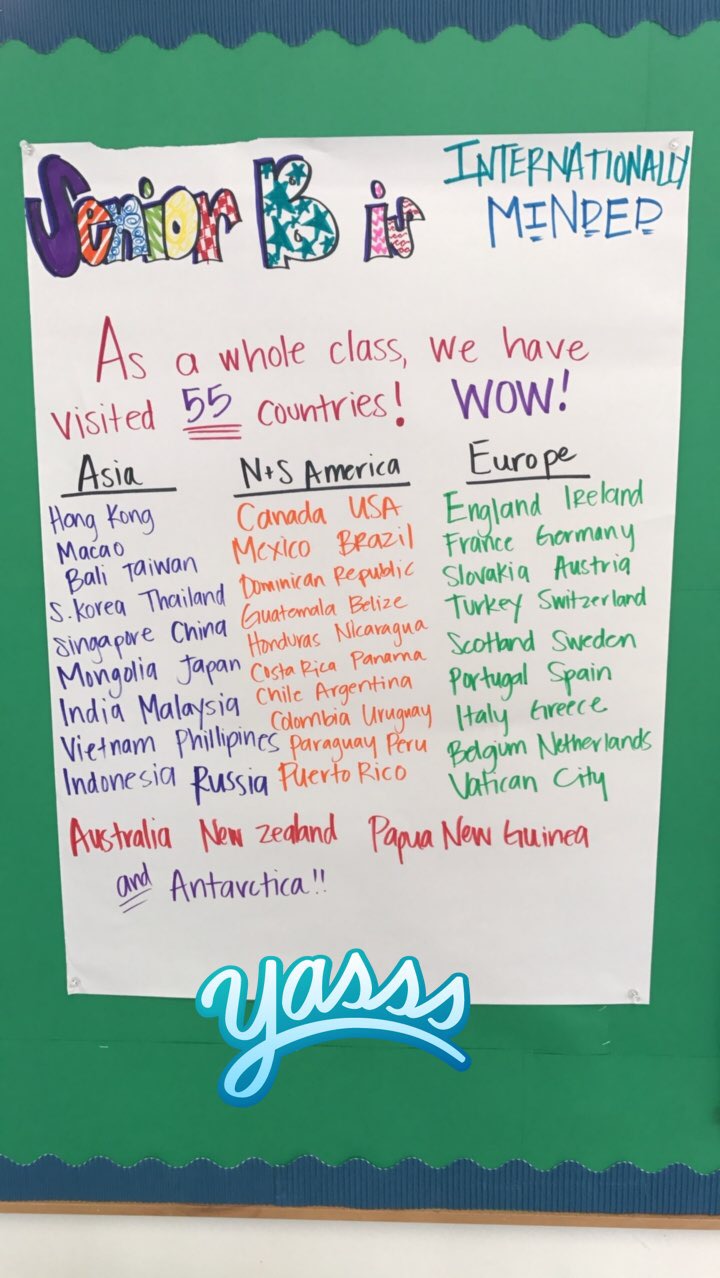 Senior B is INTERNATIONALLY
MINDED
As a whole class, we have
visited 55 countries! WOW!
Asia
Hong Kong
Macao
Bali Taiwan
S.Korea Thailand
Singapore China
Mongolia Japan
India Malaysia
Vietnam Phillipines
Indonesia Russia
N+S America
Canada USA
Mexico Brazil
Dominican Republic
Guatemala Belize
Honduras Nicaragua
Costa Rica Panama
Chile Argentina
Colombia Uruguay
Paraguay Peru
Puerto Rico
Europe
England Ireland
France Germany
Slovakia Austria
Turkey Switzerland
Scotland Sweden
Portugal Spain
Italy Greece
Belgium Netherlands
Vatican City
Australia New Zealand Papua New Guinea
and Antarctica!!
yasss